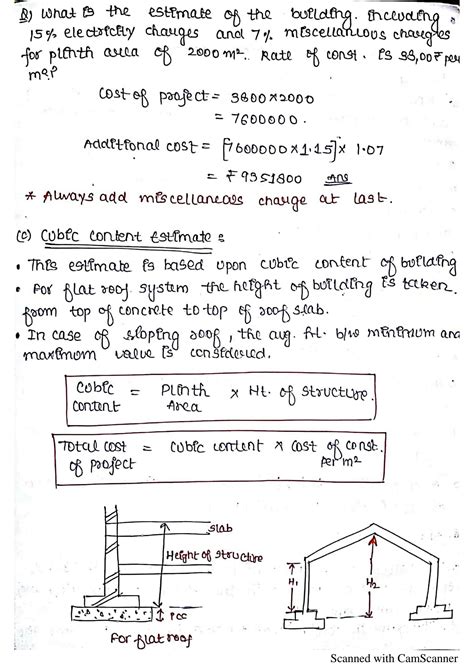 Q) What is the estimate of the building. including
15% electricity charges and 7% miscellaneous charges
for plinth area of 2000m². Rate of const. is 38,00₹ per
m².?
Cost of project = 3800×2000
= 7600000.
Additional cost = [7600000×1.15]× 1.07
= ₹ 9351800 Ans
* Always add miscellaneous charge at last.
(c) Cubic content Estimate :
• This estimate is based upon cubic content of building
• For flat roof system the height of building is taken
from top of concrete to top of roof slab.
• In case of sloping roof, the avg. ht. b/w minimum and
maximum value is considered.
Cubic content = Plinth Area × Ht. of structure.
Total cost of project = cubic content × cost of const. per m²
slab
Height of structure
PCC
For flat roof
H₁
H₂
Scanned with CamScanner